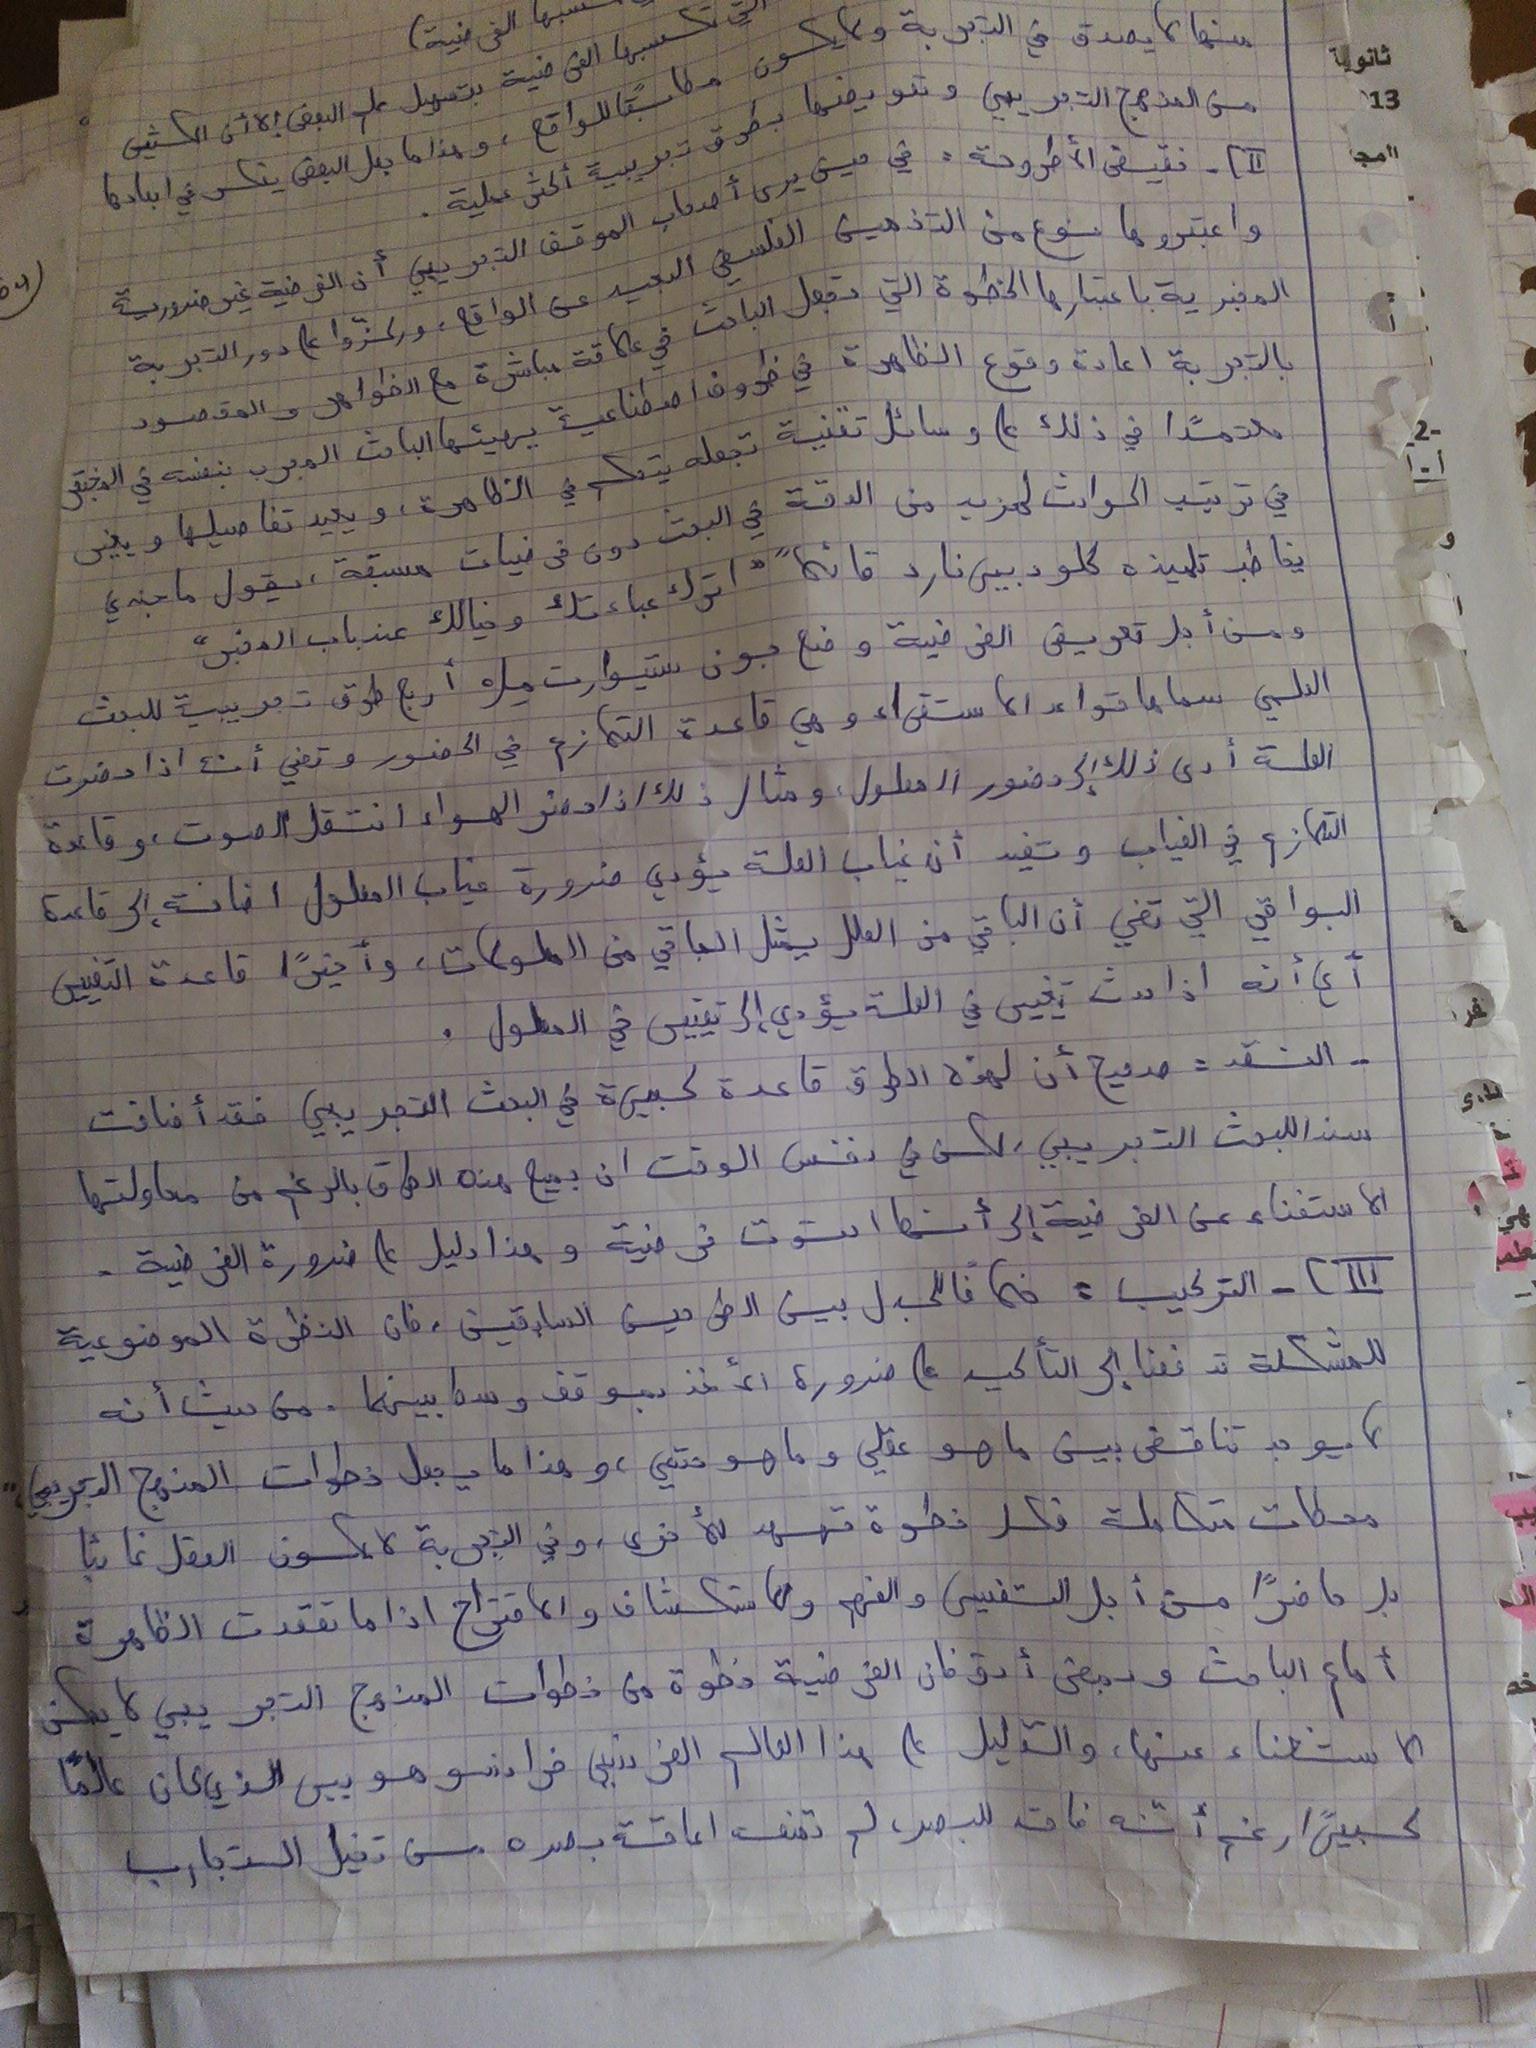 التي تكسبها الفرضية)
التي تكتسبها الفرضية بتسهيل على البعض إلا أن الكثير
منها لا يصدق في التجربة ولا يكون مطابقًا للواقع، وهذا ما جعل البعض يفكر في ابعادها
من المنهج التجريبي وتعويضها بطرق تجريبية أكثر عملية.
II)- نقيض الأطروحة: في حين يرى أصحاب الموقف التجريبي أن الفرضية غير ضرورية
واعتبروها نوع من التخمين الفلسفي البعيد عن الواقع، وركزوا على دور التجربة
المخبرية باعتبارها الخطوة التي تجعل الباحث في علاقة مباشرة مع الظواهر والمقصود
بالتجربة اعادة وقوع الظاهرة في ظروف اصطناعية يهيئها الباحث المجرب بنفسه في المختبر
معتمدًا في ذلك على وسائل تقنية تجعله يتحكم في الظاهرة، ويعيد تفاصيلها ويغير
في ترتيب الحوادث لمزيد من الدقة في البحث دون فرضيات مسبقة، يقول ماجندي
يخاطب تلميذه كلود بيرنارد قائلا: "اترك عباءتك وخيالك عند باب المخبر"
ومن أجل تعويض الفرضية وضع جون ستيوارت ميل أربع طرق تجريبية للبحث
العلمي سماها قواعد الاستقراء وهي قاعدة التلازم في الحضور وتعني أنه اذا حضرت
العلة أدى ذلك إلى حضور المعلول، ومثال ذلك اذا حضر الهواء انتقل الصوت، وقاعدة
التلازم في الغياب وتفيد أن غياب العلة يؤدي ضرورة غياب المعلول اضافة إلى قاعدة
البواقي التي تعني أن الباقي من العلل يمثل الباقي من المعلولات، وأخيرًا قاعدة التغيير
أي أنه اذا حدث تغيير في العلة يؤدي إلى تغيير في المعلول.
- النقد: صحيح أن لهذه الطرق قاعدة كبيرة في البحث التجريبي فقد أضافت
سندا للبحث التجريبي، لكن في نفس الوقت ان جميع هذه الطرق بالرغم من محاولتها
الاستغناء عن الفرضية إلى أنها احتوت فرضية وهذا دليل على ضرورة الفرضية.
III)- التركيب: خلافًا للجدل بين الطرحين السابقين، فان النظرة الموضوعية
للمشكلة تدفعنا إلى التأكيد على ضرورة الأخذ بموقف وسط بينهما. من حيث أنه
لا يوجد تناقض بين ما هو عقلي وما هو حسي، وهذا ما يجعل خطوات المنهج التجريبي
محطات متكاملة فكل خطوة تمهد للأخرى، وفي التجربة لا يكون العقل غائبا
بل حاضرًا من أجل التفسير والفهم والاستكشاف والاقتراح اذا ما تعقدت الظاهرة
أمام الباحث وبمعنى أدق فان الفرضية خطوة من خطوات المنهج التجريبي لا يمكن
الاستغناء عنها، والدليل على هذا العالم الفرنسي فرانسو هوبير الذي كان عالمًا
كبيرًا رغم أنه فاقد للبصر، لم تمنعه اعاقة بصره من تخيل التجارب
ثانوية
13
المجا
-2-
أ-1